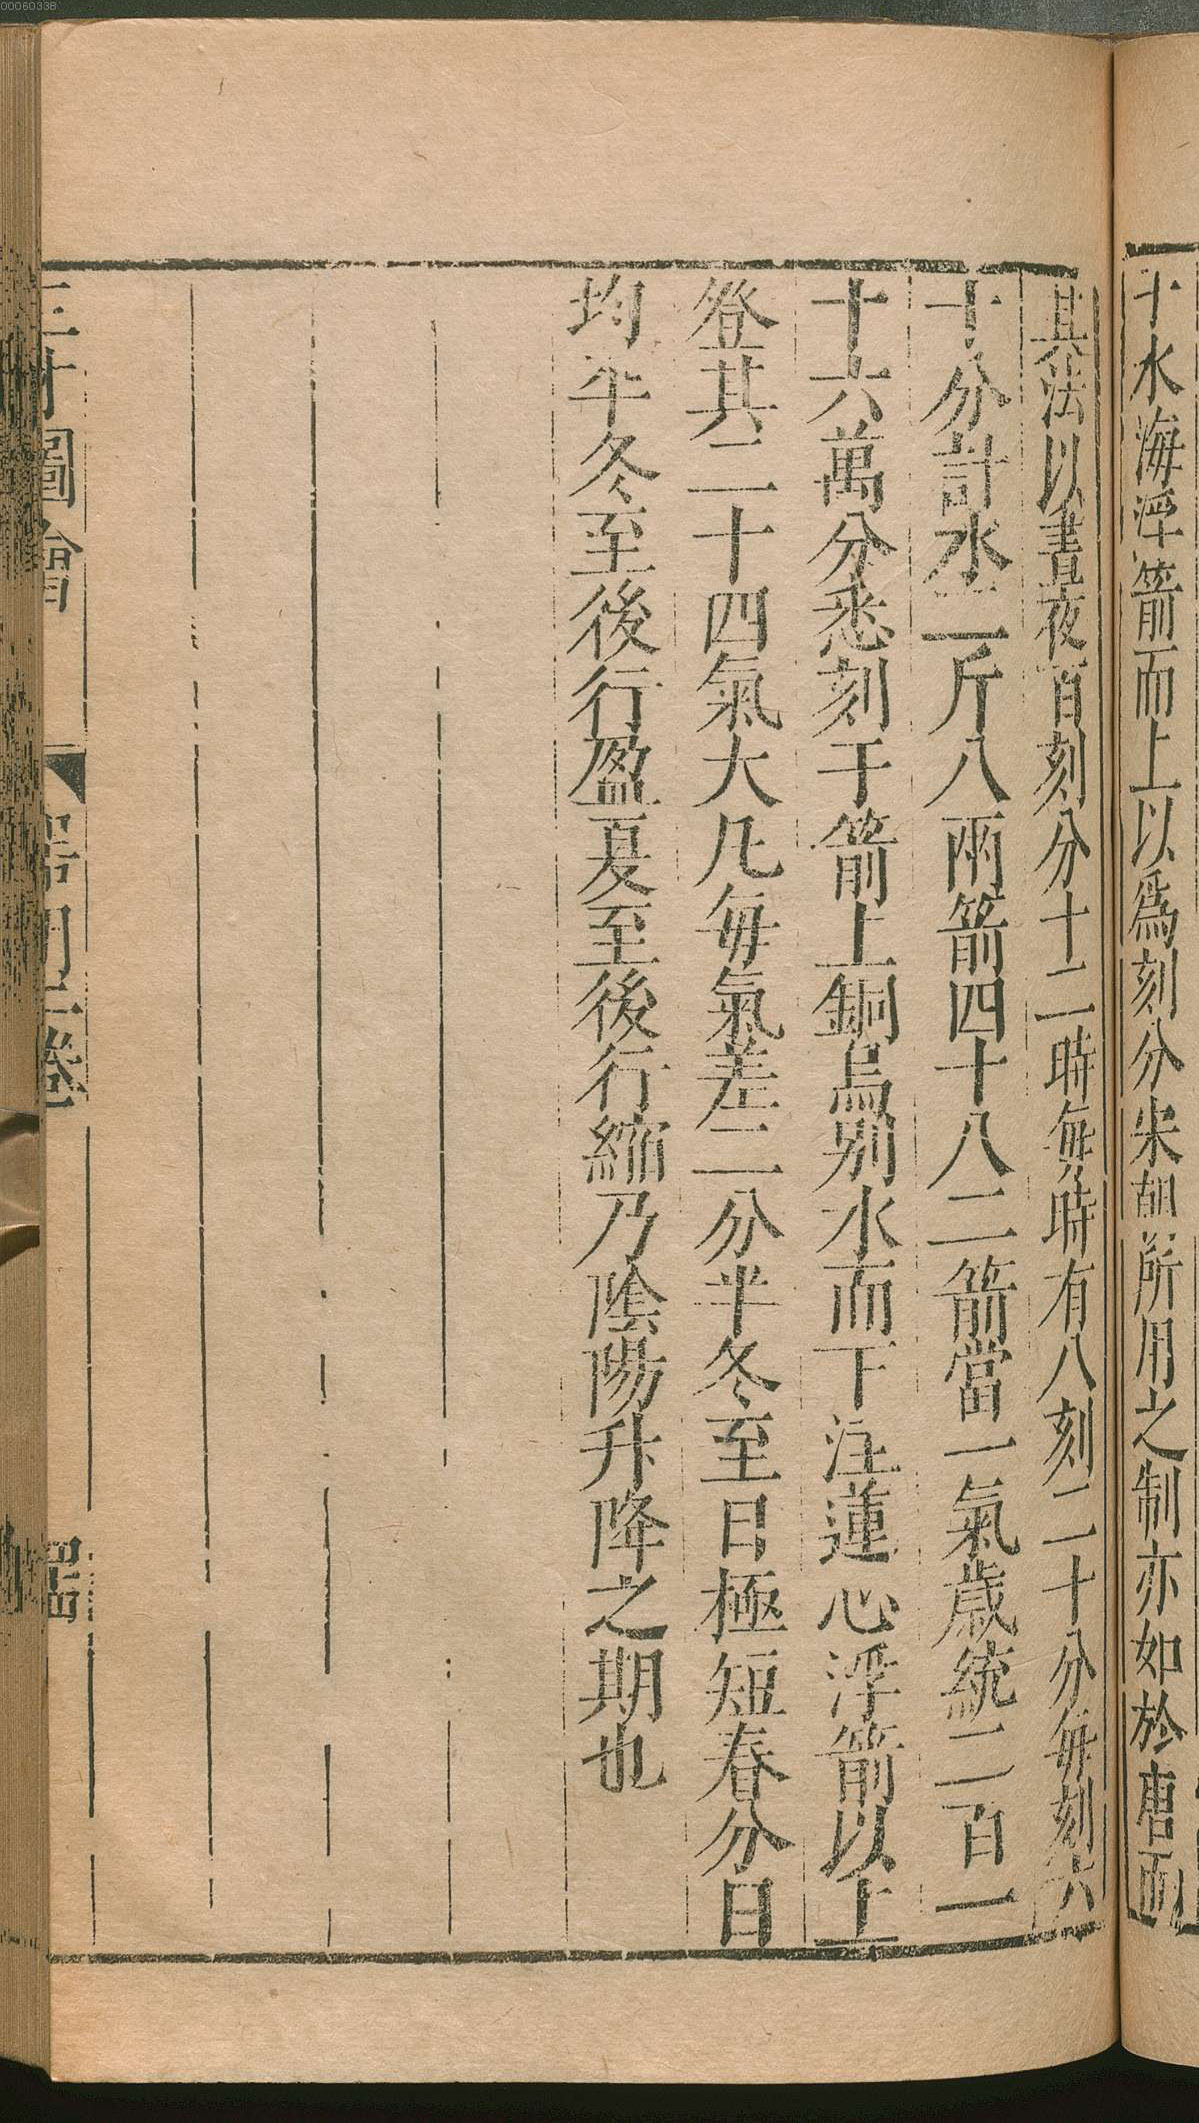 十水海浮箭而上以為刻分宋朝所用之制亦如於唐而
其法以晝夜百刻分十二時每時有八刻二十分每刻六
十分計水二斤八兩箭四十八二箭當一氣歲統二百一
十六萬分悉刻于箭上銅烏別水而下注蓮心浮箭以上
登其二十四氣大凡每氣差二分半冬至日極短春分日
均平冬至後行盈夏至後行縮乃陰陽升降之期也
三才圖會
器用二卷
00060338